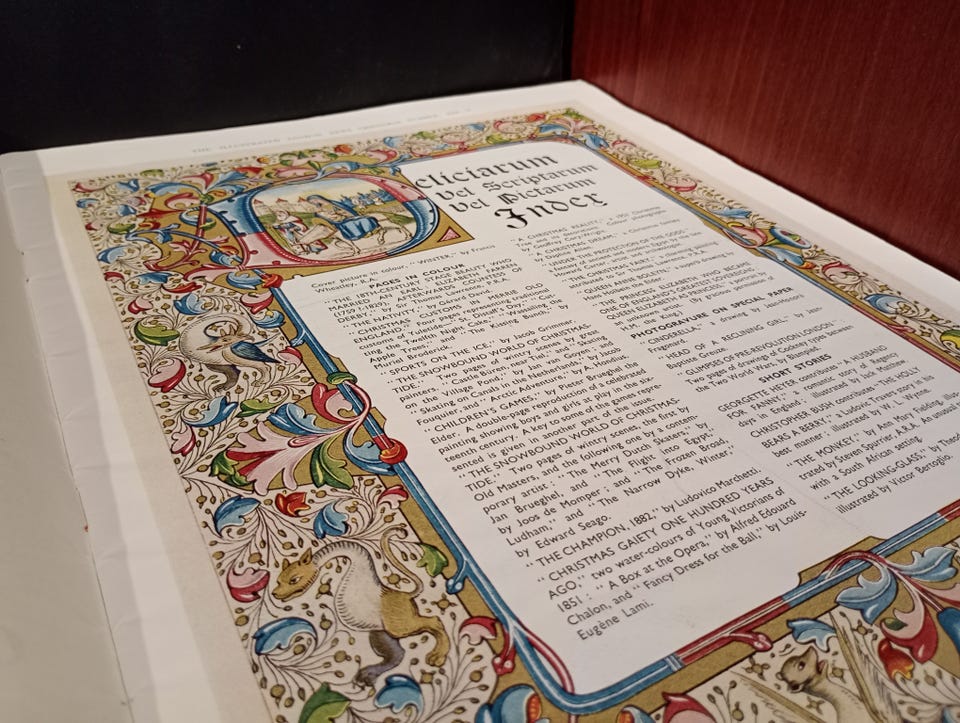 THE ILLUSTRATED LONDON NEWS CHRISTMAS NUMBER
Deliciarum
Vel Scriptarum
Vel Pictarum
Index
Cover picture in colour, "WINTER," by Francis
Wheatley, R.A.
PAGES IN COLOUR
"THE 18TH-CENTURY STAGE BEAUTY WHO
MARRIED AN EARL: ELIZABETH FARREN
(1759?-1829), AFTERWARDS COUNTESS OF
DERBY," by Sir Thomas Lawrence, P.R.A.
"THE NATIVITY," by Gerard David.
"CHRISTMAS CUSTOMS IN MERRIE OLD
ENGLAND." Four pages representing traditional
customs of Yuletide
the Twelfth Night Cake," "Wassailing
Apple Trees," and "The Kissing Bunch," by
Muriel Broderick.
"SPORT ON THE ICE," by Jacob Grimmer.
"THE SNOWBOUND WORLD OF CHRISTMAS-
TIDE." Four pages of wintry scenes by great
painters: "Castle Buren, near Tiel," and "Skating
on the Village Pond," by Jan van Goyen; and
"Skating on Canals in the Netherlands," by Jacob
Fouquier, and "Arctic Adventure," by A. Hondius.
"CHILDREN'S GAMES," by Pieter Brueghel the
Elder. A double-page reproduction of a celebrated
painting showing boys and girls at play in the six-
teenth century. A key to some of the games repre-
sented is given in another part of the issue.
"THE SNOWBOUND WORLD OF CHRISTMAS-
TIDE." Two pages of wintry scenes, the first by
Old Masters, and the following one by a contem-
porary artist: "The Merry Dutch Skaters," by
Jan Brueghel, and "The Flight into Egypt,"
by Joos de Momper; and "The Frozen Broad,
Ludham," and "The Narrow Dyke, Winter,"
by Edward Seago.
"THE CHAMPION, 1882," by Ludovico Marchetti.
"CHRISTMAS GAIETY ONE HUNDRED YEARS
AGO," two water-colours of Young Victorians of
1851: "A Box at the Opera," by Alfred Edouard
Chalon, and "Fancy Dress for the Ball," by Louis-
Eugène Lami.
"A CHRISTMAS REALITY," a 1951 Christmas
Tree and its decorations. Colour photographs
by Godfrey Cory-Wright.
"A CHRISTMAS DREAM," a Christmas fantasy
by Daphne Allen.
"UNDER THE PROTECTION OF THE GODS,"
"THE CHRISTMAS KITTEN," a charming painting
attributed to Sir Thomas Lawrence, P.R.A.
"QUEEN ANNE BOLEYN," a superb drawing by
Hans Holbein the Elder.
"THE PRINCESS ELIZABETH WHO BECAME
ONE OF ENGLAND'S GREATEST MONARCHS:
QUEEN ELIZABETH AS PRINCESS," a portrait by
an unknown artist. (By gracious permission of
H.M. the King.)
PHOTOGRAVURE ON SPECIAL PAPER
"CINDERELLA," a drawing by Jean-Honoré
Fragonard.
"HEAD OF A RECLINING GIRL," by Jean-
Baptiste Greuze.
"GLIMPSES OF PRE-REVOLUTION LONDON."
Two pages of drawings of Cockney types between
the Two World Wars, by Blampied.
SHORT STORIES
GEORGETTE HEYER contributes "A HUSBAND
FOR FANNY," a romantic story of Regency
days in England;
CHRISTOPHER BUSH contributes "THE HOLLY
BEARS A BERRY," a Ludovic Travers story in his
best manner, illustrated by W. L. Wynne.
"THE MONKEY," by Ann Mary Fielding, illus-
trated by Steven Spurrier, A.R.A. An unusual
with a South African setting.
"THE LOOKING-GLASS," by
illustrated by Victor Bertoglio.